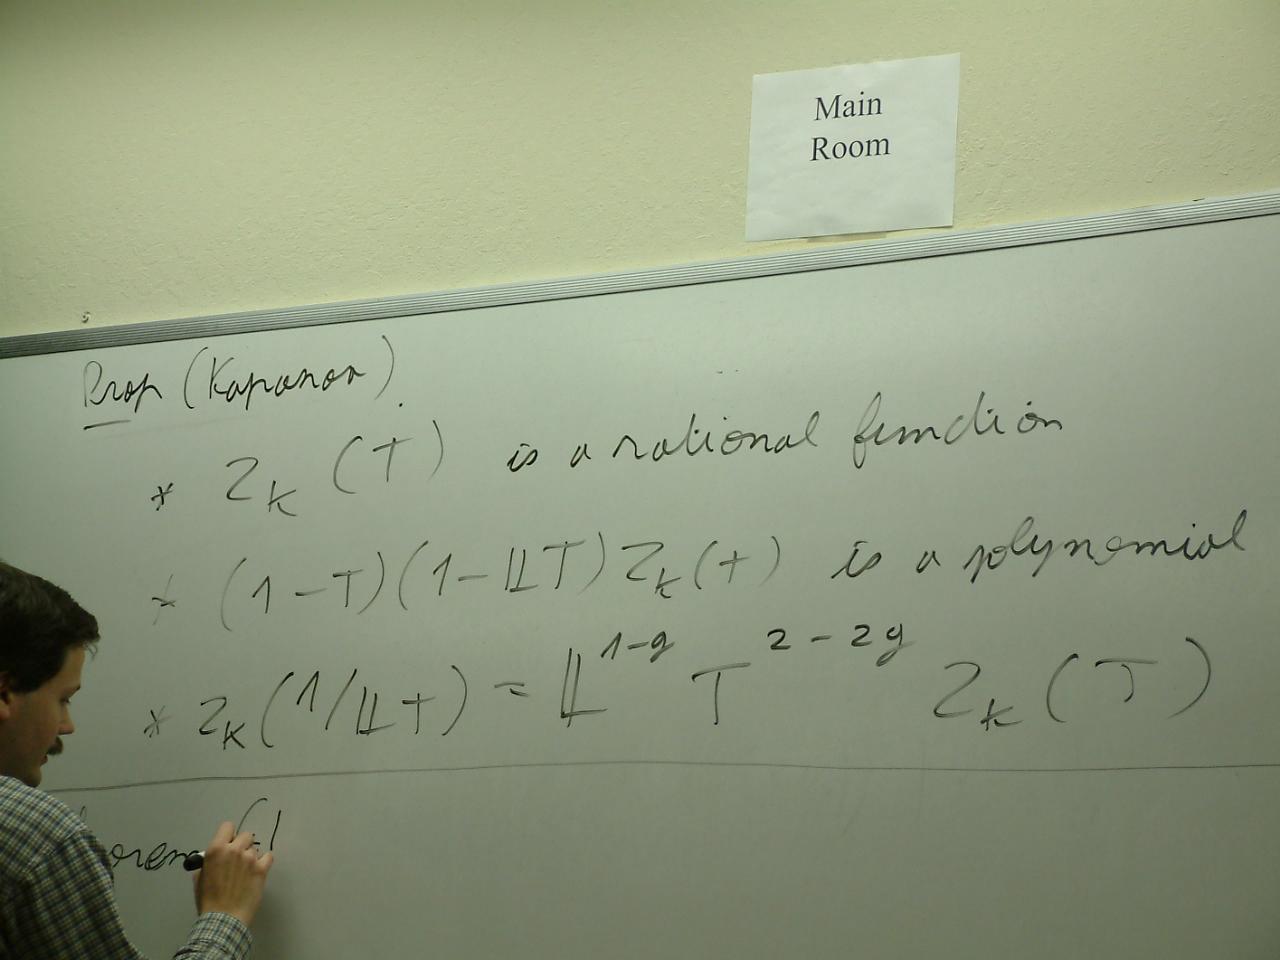 Main
Room
Prop (Kapranov).
* Z_K (T) is a rational function
* (1-T)(1-𝕃T) Z_K(t) is a polynomial
* Z_K(1/𝕃t) = 𝕃^{1-g} T^{2-2g} Z_K(T)
orem (